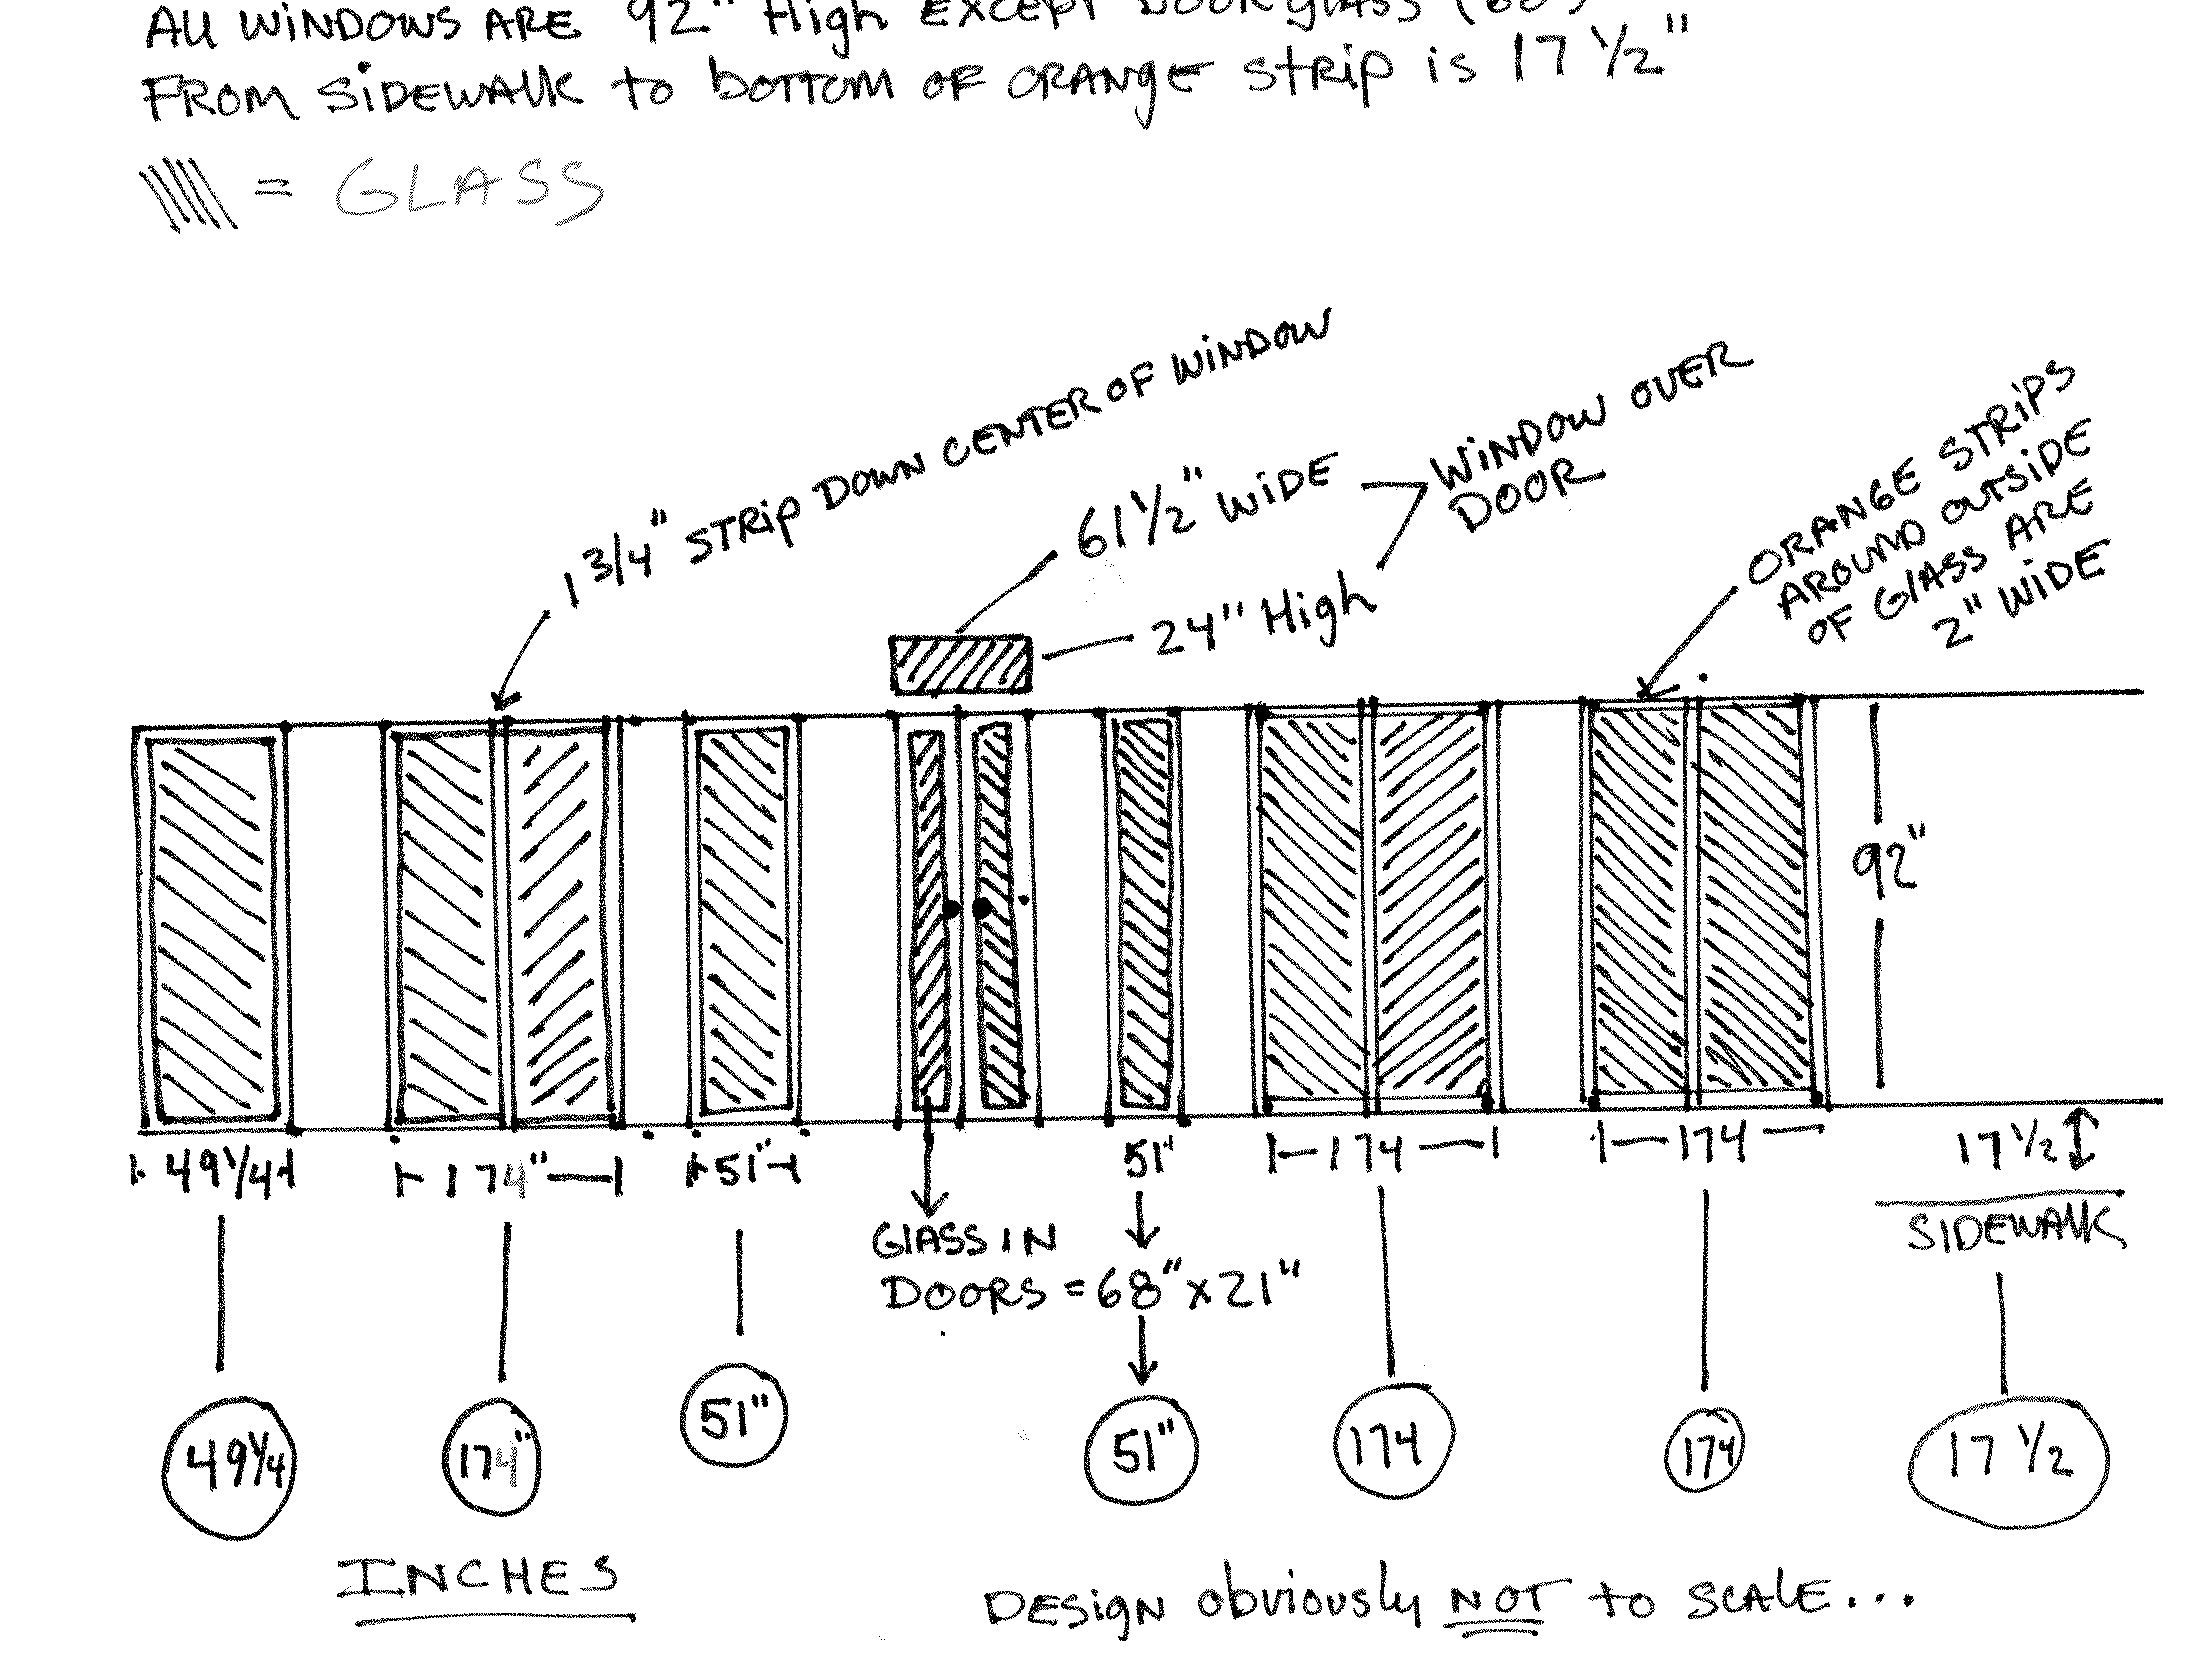 All WINDOWS ARE 92" High EXCEPT DOOR glass
FROM SIDEWALK to bottom OF ORANGE Strip is 17 1/2"
= GLASS
1 3/4" STRIP DOWN CENTER OF WINDOW
61 1/2" WIDE
24" High
WINDOW OVER
DOOR
ORANGE STRIPS
AROUND OUTSIDE
OF GLASS ARE
2" WIDE
92"
49 1/4
174"
51"
51"
174
174
17 1/2
SIDEWALK
GLASS IN
DOORS = 68" x 21"
49 1/4
174"
51"
51"
174
174
17 1/2
INCHES
DESIGN obviously NOT to SCALE...